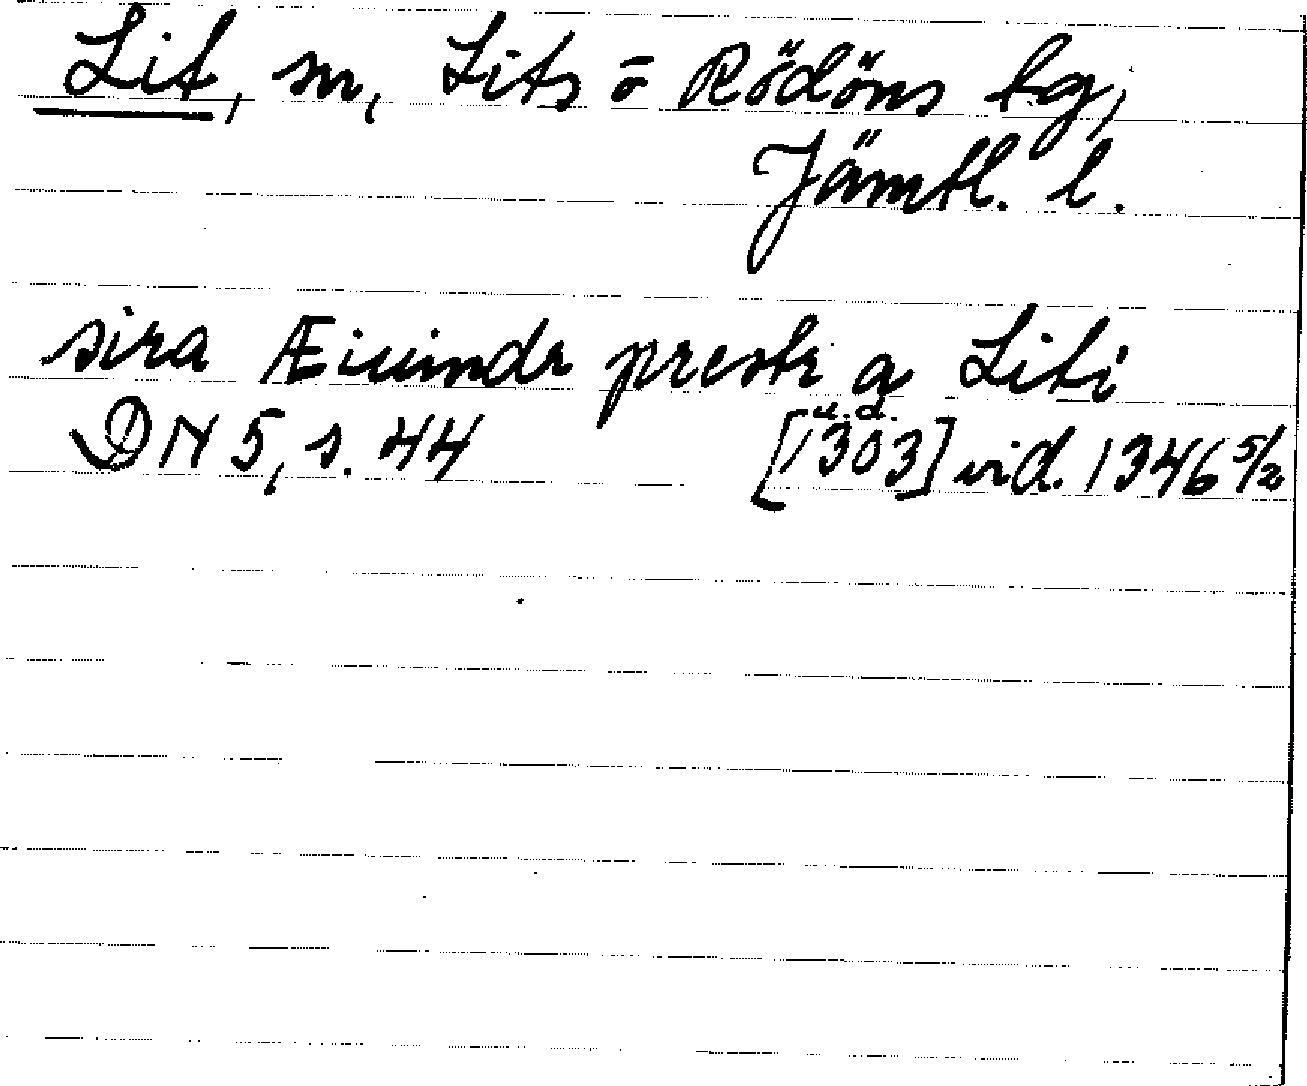 Lit, sn, Lits o Rödöns tg,
Jämtl. l.
sira Æiuindr prestr a Liti
DN 5, s. 44 [u.d. 1303] vid. 1346 5/2